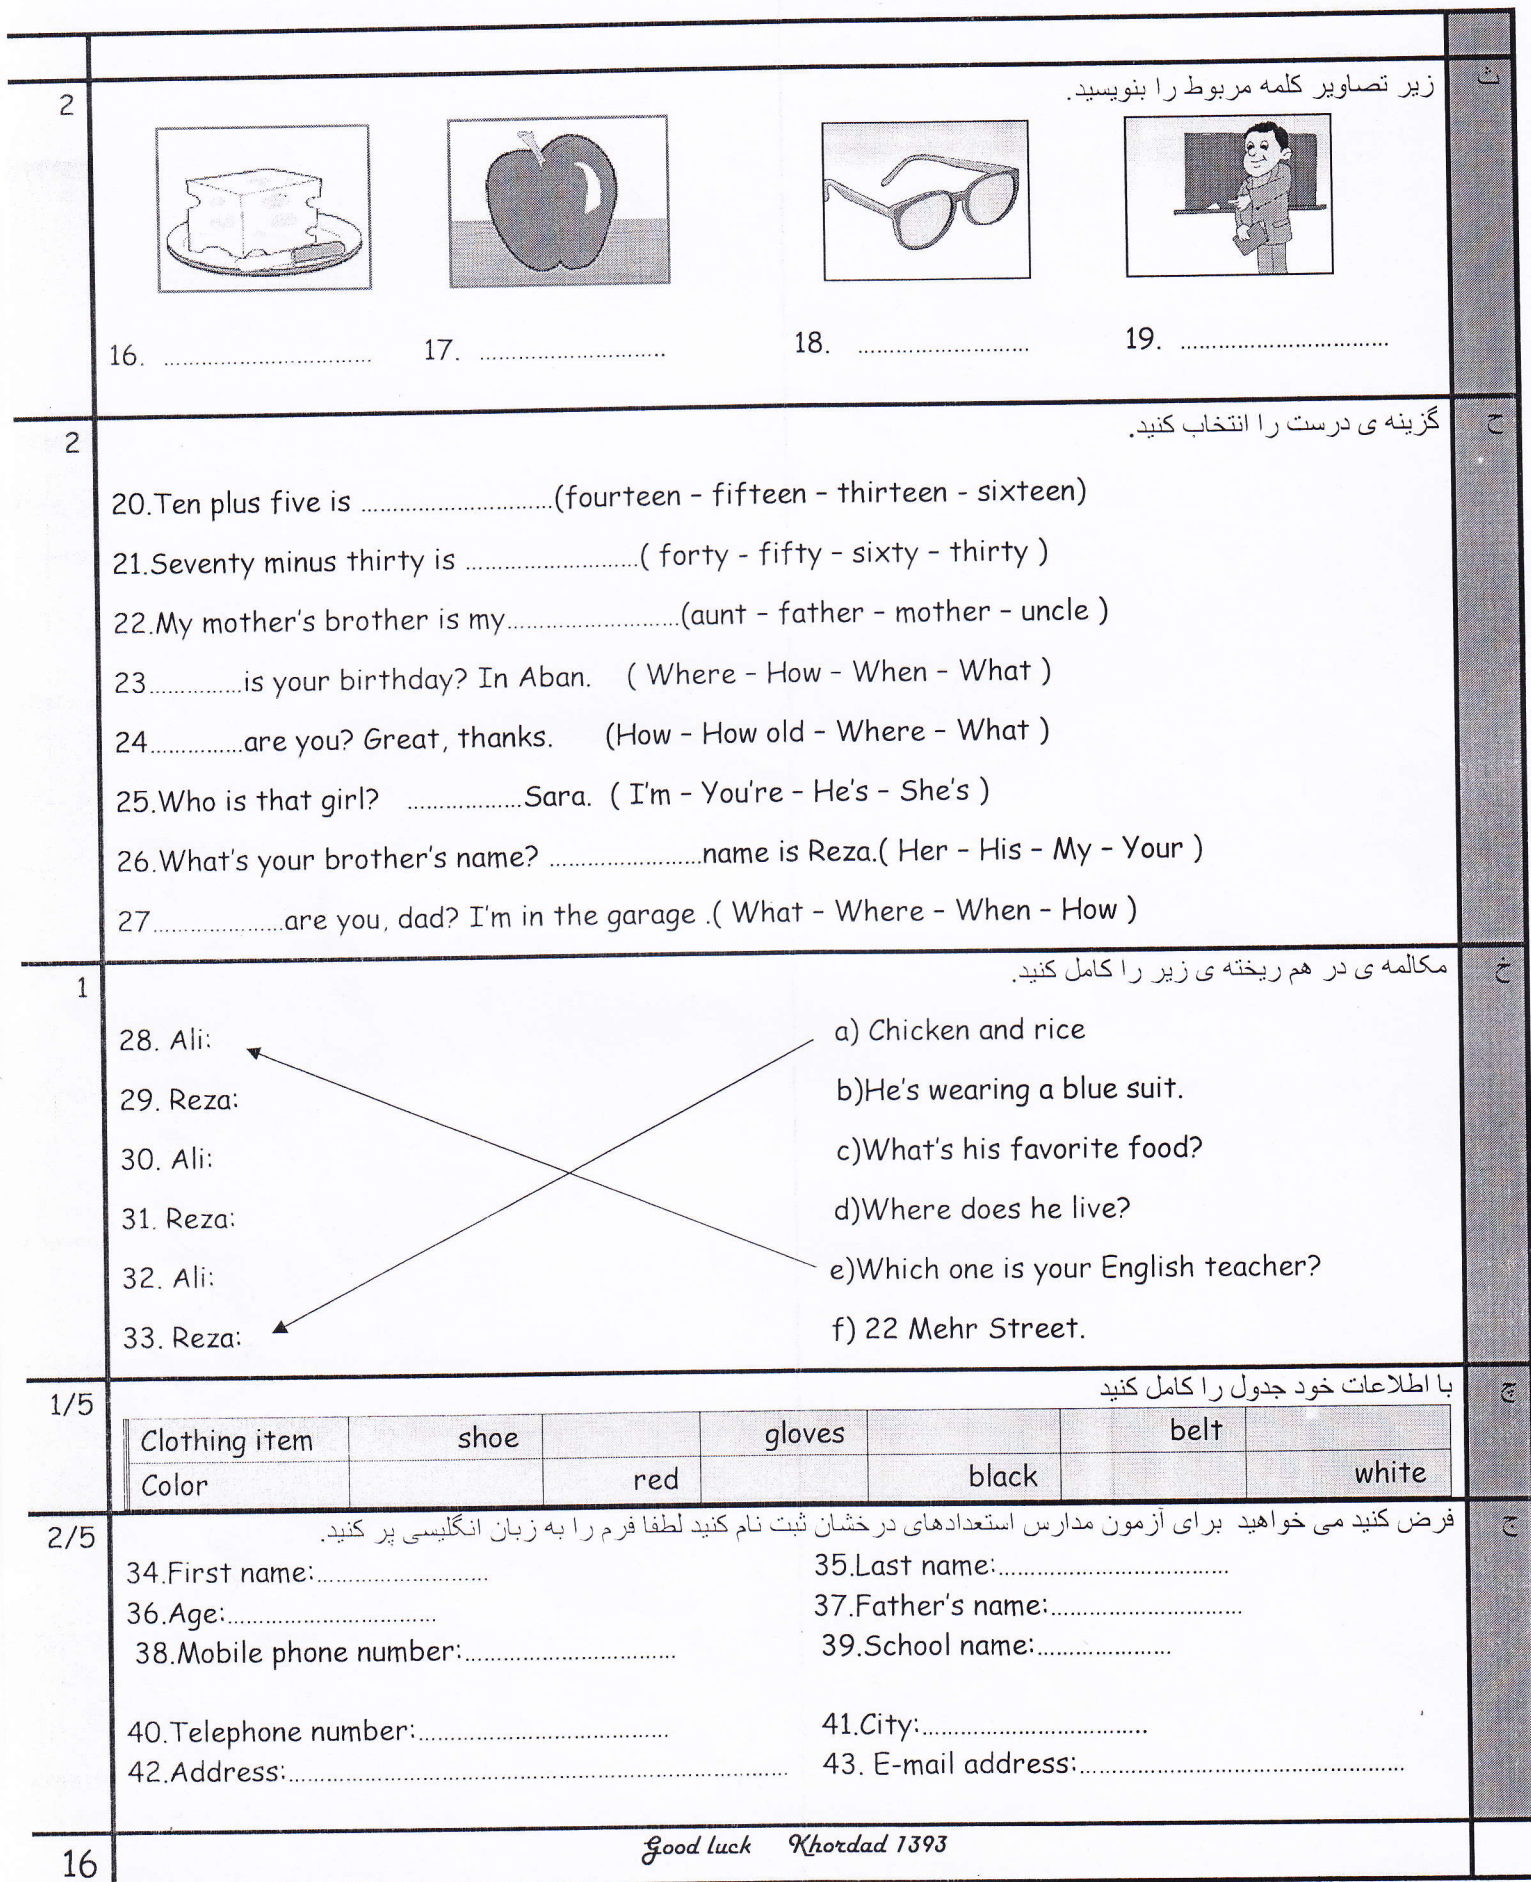 ث
زیر تصاویر کلمه مربوط را بنویسید.
2
16. ............................
17. ............................
18. ............................
19. ............................
ح
گزینه ی درست را انتخاب کنید.
2
20.Ten plus five is ............................(fourteen – fifteen – thirteen - sixteen)
21.Seventy minus thirty is ............................( forty - fifty – sixty – thirty )
22.My mother's brother is my............................(aunt – father – mother – uncle )
23..............is your birthday? In Aban. ( Where – How – When – What )
24..............are you? Great, thanks. (How – How old – Where – What )
25.Who is that girl? ..................Sara. ( I'm – You're – He's – She's )
26.What's your brother's name? ........................name is Reza.( Her – His – My – Your )
27.....................are you, dad? I'm in the garage .( What – Where – When – How )
خ
مکالمه ی در هم ریخته ی زیر را کامل کنید.
1
28. Ali:
a) Chicken and rice
29. Reza:
b)He's wearing a blue suit.
30. Ali:
c)What's his favorite food?
31. Reza:
d)Where does he live?
32. Ali:
e)Which one is your English teacher?
33. Reza:
f) 22 Mehr Street.
چ
با اطلاعات خود جدول را کامل کنید
1/5
Clothing item shoe gloves belt
Color red black white
ج
فرض کنید می خواهید برای آزمون مدارس استعدادهای درخشان ثبت نام کنید لطفا فرم را به زبان انگلیسی پر کنید.
2/5
34.First name:............................ 35.Last name:....................................
36.Age:.................................. 37.Father's name:...............................
38.Mobile phone number:.................................. 39.School name:......................
40.Telephone number:........................................ 41.City:....................................
42.Address:................................................................................ 43. E-mail address:....................................................
Good luck Khordad 1393
16